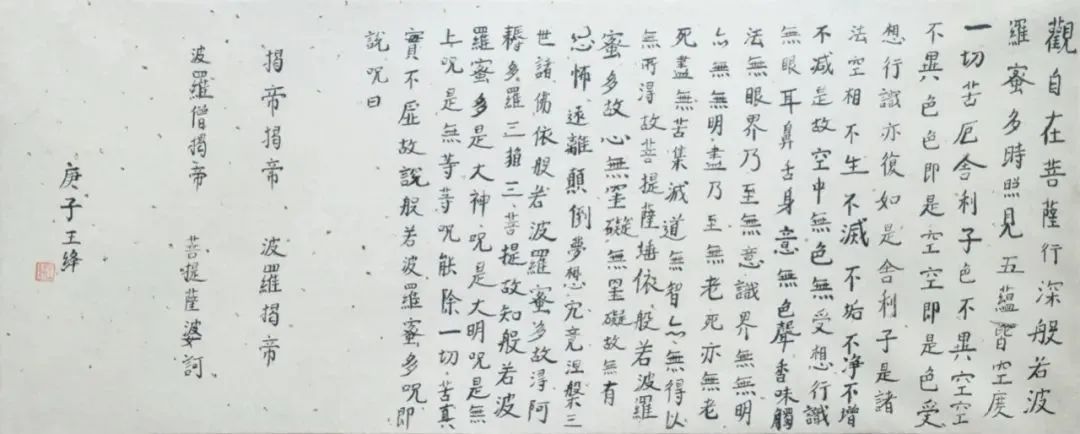 觀自在菩薩行深般若波
羅蜜多時照見五蘊皆空度
一切苦厄舍利子色不異空空
不異色色即是空空即是色受
想行識亦復如是舍利子是諸
法空相不生不滅不垢不净不增
不减是故空中無色無受想行識
無眼耳鼻舌身意無色聲香味觸
法無眼界乃至無意識界無無明
亦無無明盡乃至無老死亦無老
死盡無苦集滅道無智亦無得以
無所得故菩提薩埵依般若波羅
蜜多故心無罣礙無罣礙故無有
恐怖遠離顛倒夢想究竟涅槃三
世諸佛依般若波羅蜜多故得阿
耨多羅三藐三菩提故知般若波
羅蜜多是大神咒是大明咒是無
上咒是無等等咒能除一切苦真
實不虛故說般若波羅蜜多咒即
說咒曰
揭帝揭帝 波羅揭帝
波羅僧揭帝 菩提薩婆訶
庚子王绛